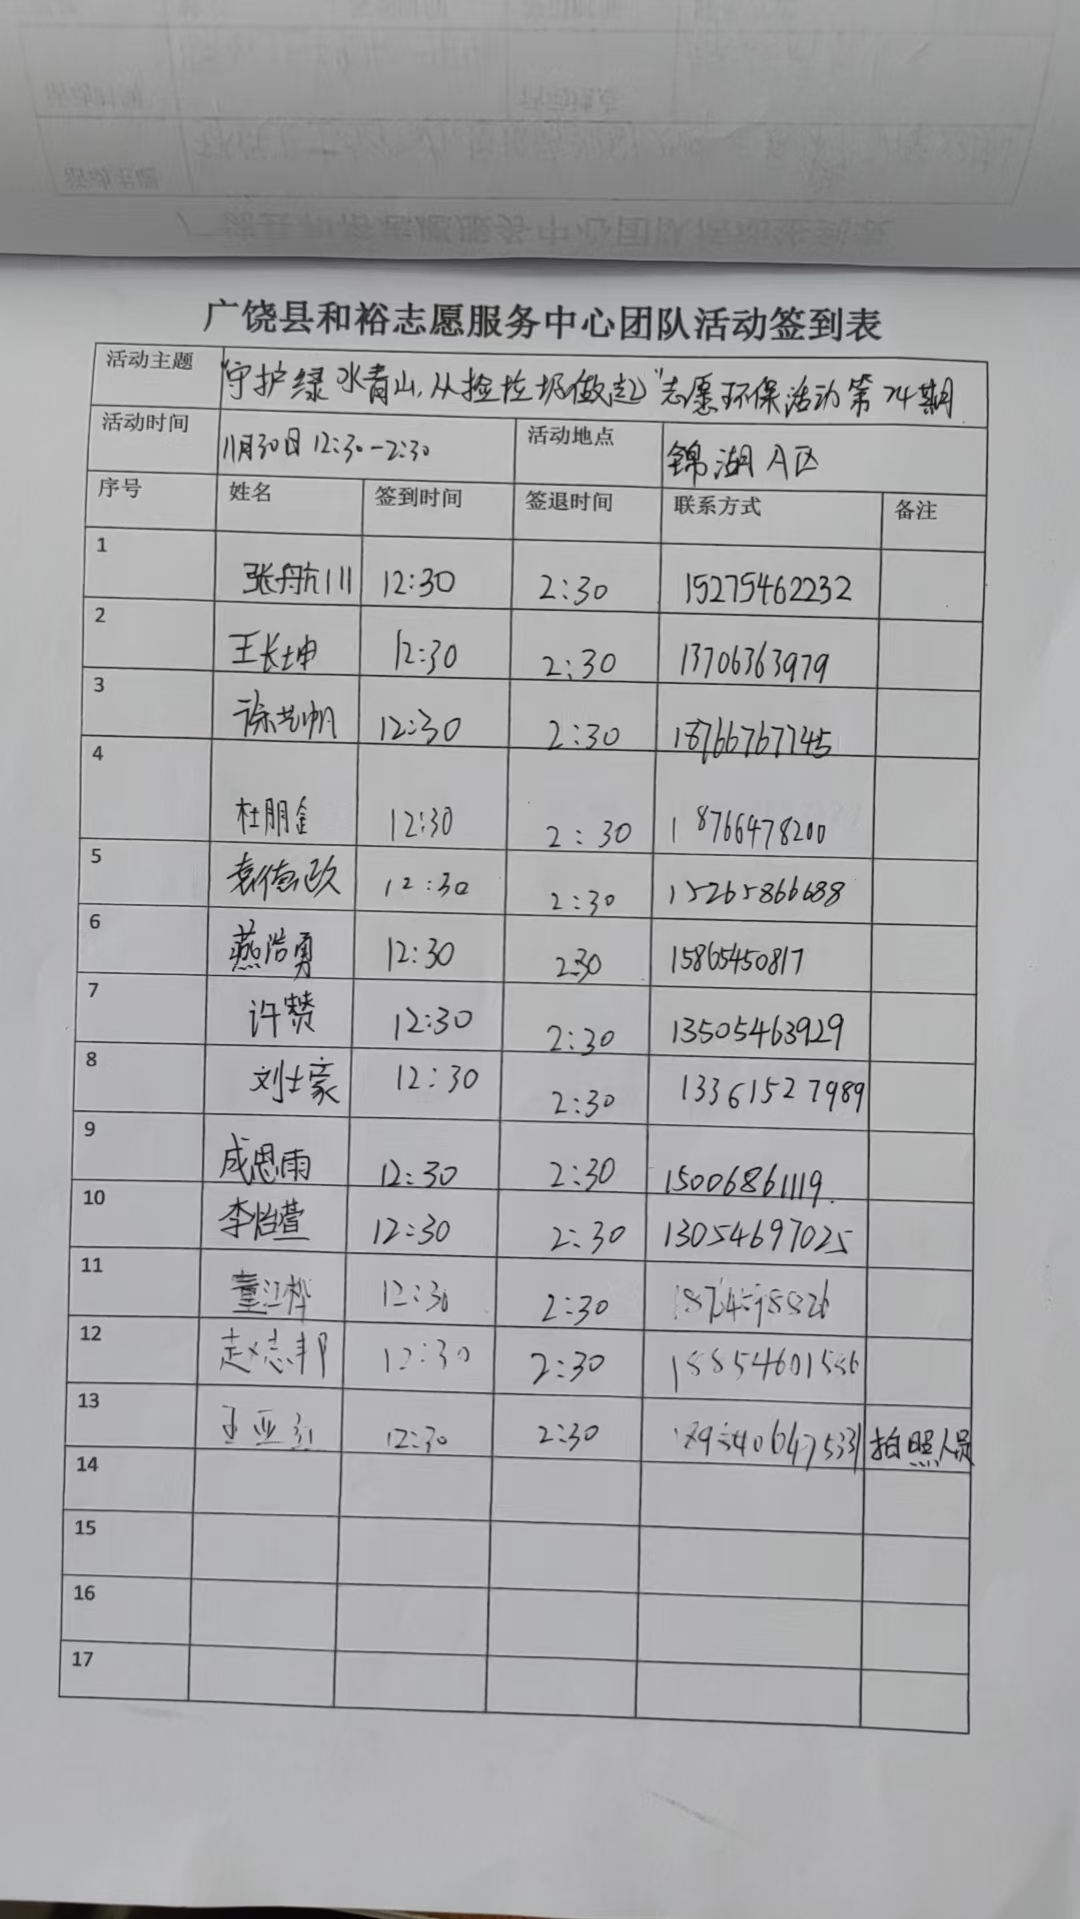 广饶县和裕志愿服务中心团队活动签到表
活动主题 "守护绿水青山,从捡垃圾做起"志愿环保活动第74期
活动时间 11月30日 12:30-2:30 活动地点 锦湖A区
序号 姓名 签到时间 签退时间 联系方式 备注
1 张航川 12:30 2:30 15275462232
2 王长坤 12:30 2:30 13706363979
3 徐艺帆 12:30 2:30 18766767745
4 杜朋金 12:30 2:30 18766478200
5 袁德政 12:30 2:30 15265866688
6 燕浩勇 12:30 2:30 15865450817
7 许赞 12:30 2:30 13505463929
8 刘士豪 12:30 2:30 13361527989
9 成思雨 12:30 2:30 15006861119
10 李怡萱 12:30 2:30 13054697025
11 董江桦 12:30 2:30
12 赵志邦 12:30 2:30 18854601586
13 王亚红 12:30 2:30 拍照人员
14
15
16
17